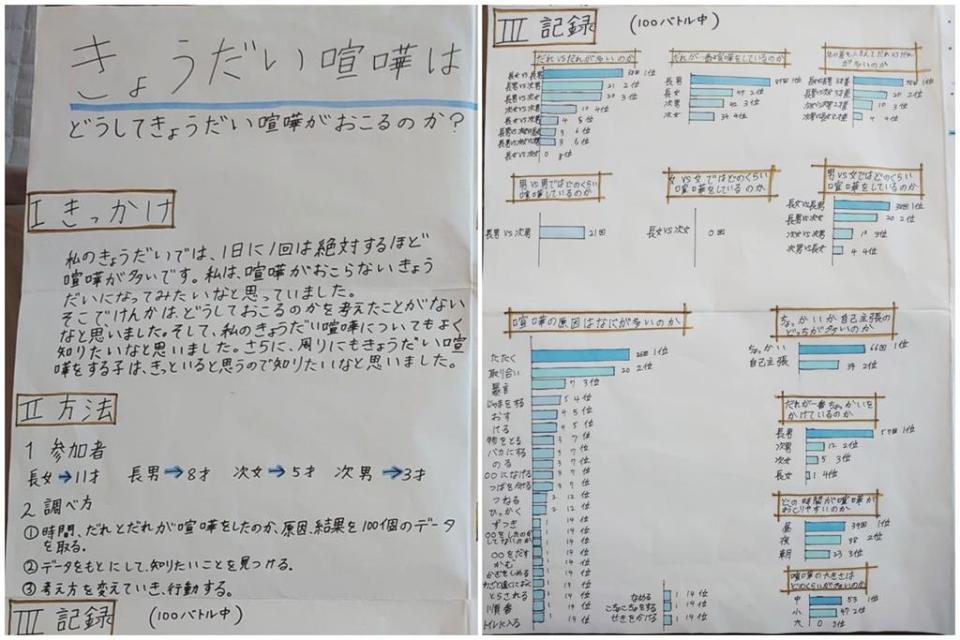 きょうだい喧嘩は
どうしてきょうだい喧嘩がおこるのか?
I きっかけ
私のきょうだいでは、1日に1回は絶対するほど
喧嘩が多いです。私は、喧嘩がおこらないきょう
だいになってみたいなと思っていました。
そこでけんかは、どうしておこるのかを考えたことがない
なと思いました。そして、私のきょうだい喧嘩についてもよく
知りたいなと思いました。さらに、周りにもきょうだい喧
嘩をする子は、きっといると思うので知りたいなと思いました。
II 方法
1 参加者
長女→11才 長男→8才 次女→5才 次男→3才
2 調べ方
①時間、だれとだれが喧嘩をしたのか、原因、結果を100個のデータ
を取る。
②データをもとにして、知りたいことを見つける。
③考え方を変えていき、行動する。
III 記録 (100バトル中)
III 記録 (100バトル中)
だれVSだれが多いのか
長女VS長男 1位
長男VS次男 21 2位
長男VS次女 20 3位
次女VS次男 10 4位
4 5位
3 6位
3 6位
長女VS次女 0 8位
だれが一番喧嘩をしているのか
長男 1位
長女 2位
次男 3位
次女 34 4位
が多いのか
1位
20 2位
10 3位
4 4位
男VS男ではどのくらい
喧嘩しているのか
長男VS次男 21回
女VS女ではどのくらい
喧嘩をしているのか
長女VS次女 0回
男VS女ではどのくらい
喧嘩をしているのか
長女VS長男 1位
長男VS次女 20 2位
次女VS次男 10 3位
次男VS長女 4 4位
喧嘩の原因はなにが多いのか
たたく 1位
取り合い 20 2位
暴言 7 3位
じゃまをする 5 4位
おす 4 5位
ける 4 5位
物をとる 3 7位
バカにする 3 7位
のる 3 7位
○○になげる 3 7位
つばを付ける 3 7位
つねる 2 12位
ひっかく 2 12位
ずつき 1 14位
1 14位
○○をだす 1 14位
かむ 1 14位
かぎをしめる 1 14位
1 14位
とらされる 1 14位
順番 1 14位
トイレに入る 1 14位
なめる 1 14位
こちょこちょをする 1 14位
せきをかける 1 14位
ちょっかいか自己主張の
どっちが多いのか
ちょっかい 66回 1位
自己主張 34 2位
だれが一番ちょっかいを
かけているのか
長男 1位
次男 12 2位
次女 5 3位
長女 1 4位
どの時間が喧嘩が
おこりやすいのか
昼 39回 1位
夜 38 2位
朝 23 3位
喧嘩の大きさは
どのくらいが多いのか
中 53 1位
小 47 2位
大 0 3位